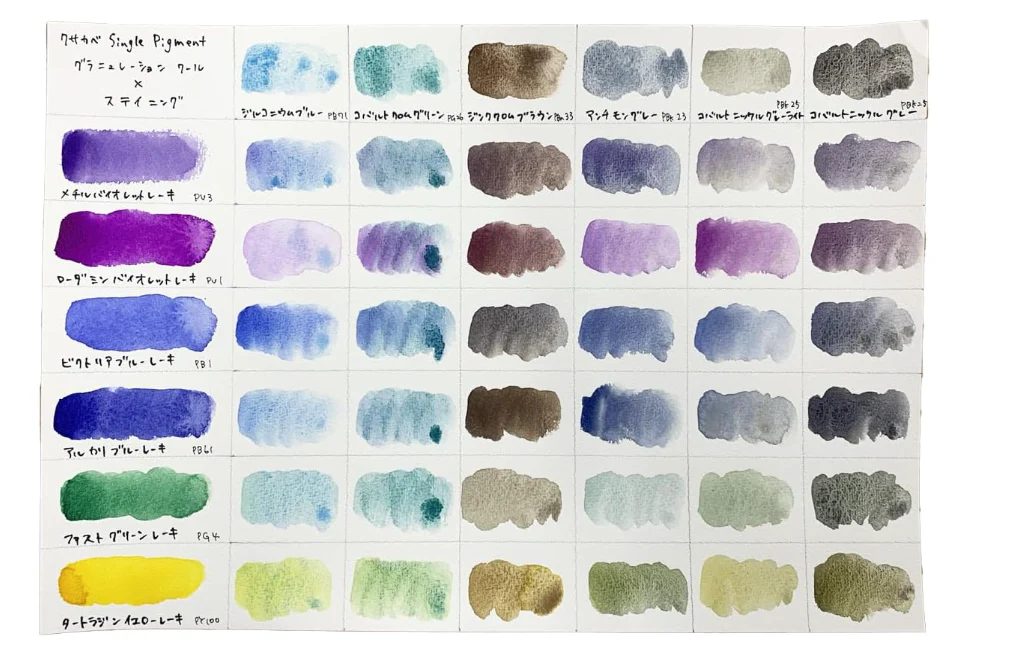 クサカベ Single Pigment
グラニュレーション クール
×
ステイニング
ジルコニウムブルー PB71
コバルトクロムグリーン PG26
ジンククロムブラウン PBr33
アンチモングレー PBk23
コバルトニッケルグレーライト PBk25
コバルトニッケルグレー PBk25
メチルバイオレットレーキ PV3
ローダミンバイオレットレーキ PV1
ビクトリアブルーレーキ PB1
アルカリブルーレーキ PB61
ファストグリーンレーキ PG4
タートラジンイエローレーキ PY100